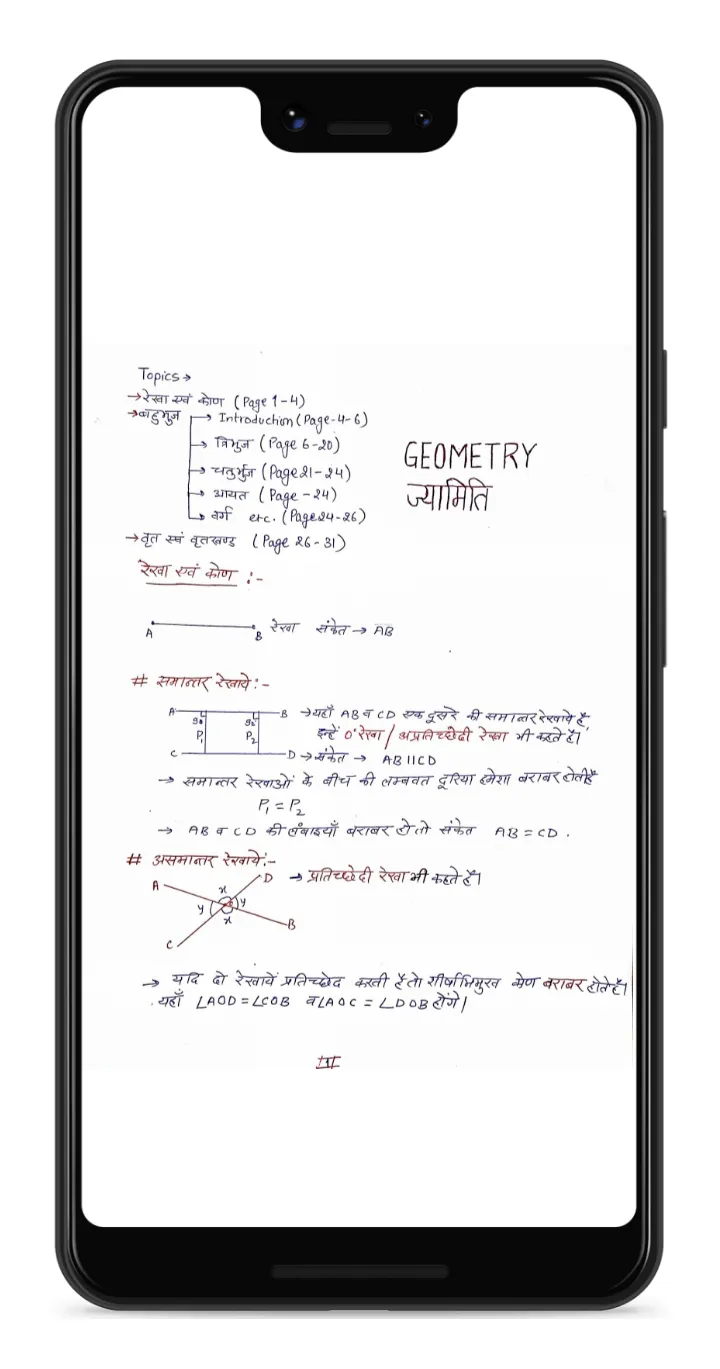 Topics →
→ रेखा एवं कोण (Page 1-4)
→ बहुभुज → Introduction (Page-4-6)
→ त्रिभुज (Page 6-20)
→ चतुर्भुज (Page 21-24)
→ आयत (Page - 24)
→ वर्ग etc. (Page 24-26)
→ वृत एवं वृतखण्ड (Page 26-31)
GEOMETRY
ज्यामिति
रेखा एवं कोण :-
A B रेखा संकेत → AB
# समान्तर रेखाये :-
A B → यहाँ AB व CD एक दूसरे की समान्तर रेखाये है,
90° 90°
P₁ P₂ इन्हें 0' रेखा / अप्रतिच्छेदी रेखा भी कहते है।
C D → संकेत → AB || CD
→ समान्तर रेखाओं के बीच की लम्बवत दूरिया हमेशा बराबर होती है
P₁ = P₂
→ AB व CD की लंबाइयाँ बराबर हो तो संकेत AB = CD .
# असमान्तर रेखाये :-
A x D → प्रतिच्छेदी रेखा भी कहते है।
y y
x B
C
→ यदि दो रेखायें प्रतिच्छेद करती है तो शीर्षाभिमुख कोण बराबर होते है।
यहाँ ∠AOD = ∠COB व ∠AOC = ∠DOB होंगे।